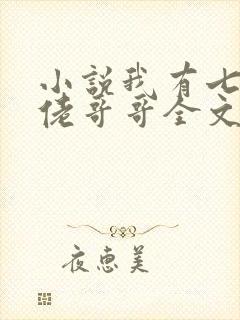 小説我有七
佬哥哥全文
夜恵美